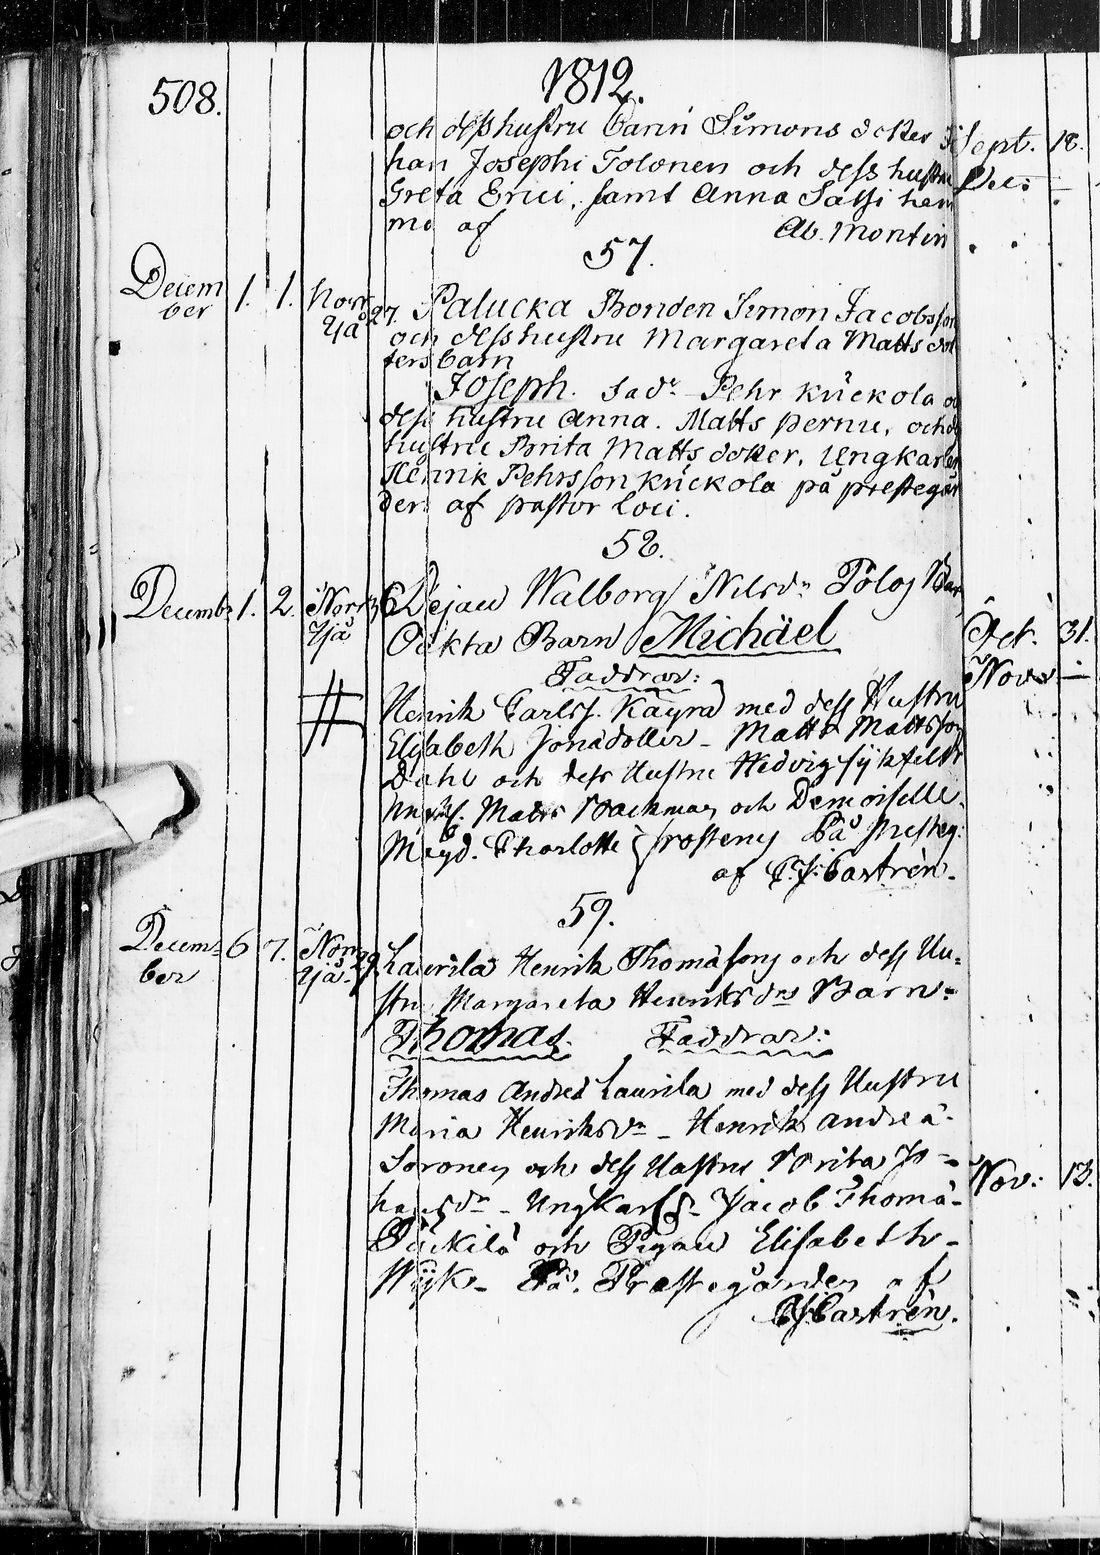 508.
1812.
och dess hustru Carin Simons dotter
han Josephi Tolonen och dess hustru
Greta Erici, samt Anna
mo af Ab. Montin
57.
Decem
ber
1. 1. Norr
Yjå 27. Palucka Bonden Simon Jacobsson
och dess hustru Margareta Matts dot
ters barn
Joseph. fadr Pehr Kückola
dess hustru Anna. Matts Pernu, och
hustru Brita Matts dotter, Ungkarlen
Henrik Pehrsson Kückola på prestegår
den af pastor loci.
58.
Decembr 1. 2. Norr
Yjå
Pejau Walborg Nilsdr Toloj
Oäkta Barn Michäel
Faddrar:
Henrik Carlss. Kayra med dess Hustru
Elisabeth Jonædotter - Matts Mattsson
Dahl och dess Hustru Hedvig
Matts Backman och Demoiselle
Magd. Charlotte Frosteny På Presteg:
af C.J. Castrèn.
59.
Decem=
ber
6 7. Norr
Yjå 29
Laurila Henrik Thomæsons och dess Hu=
stru Margareta Henriksdrs Barn:
Thomas. Faddrar:
Thomas Andreæ Laurila med dess Hustru
Maria Henriksdr - Henrik Andreæ
Soronen och dess Hustru Brita Jo=
hansdr - Ungkarl Jacob Thomæ
och Pigan Elisabeth
Wijk - På Prestegården af
CJCastrèn.
Sept. 18.
Dec:
Oct. 31.
Novr —
Nov: 13.